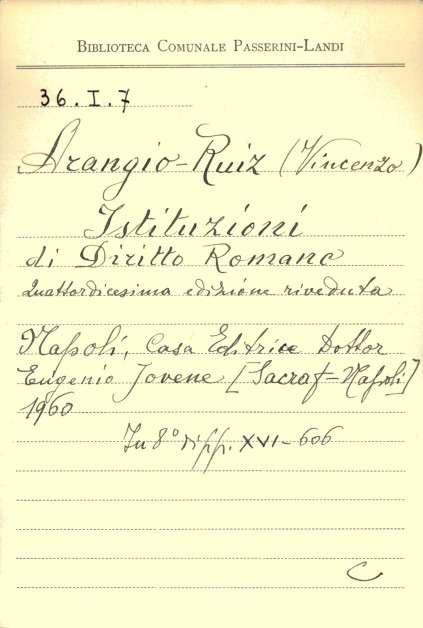 BIBLIOTECA COMUNALE PASSERINI-LANDI
36.I.7
Arangio-Ruiz (Vincenzo)
Istituzioni
di Diritto Romano
Quattordicesima edizione riveduta
Napoli, Casa Editrice Dottor
Eugenio Jovene [Sacraf=Napoli]
1960
In 8° di pp. XVI-606
C